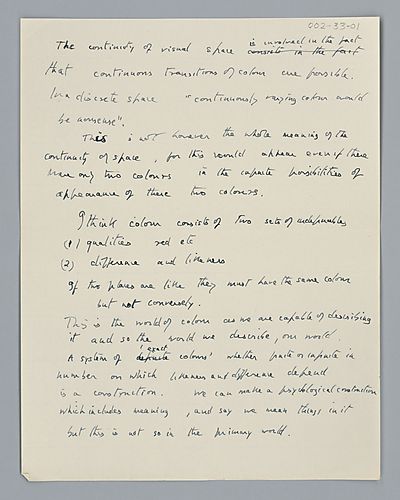 002-33-01
The continuity of visual space is involved in the fact consists in the fact
that continuous transitions of colour are possible.
In a discrete space "continuously varying colour would
be nonsense".
This is not however the whole meaning of the
continuity of space, for this would appear even if there
were only two colours in the infinite possibilities of
appearance of these two colours.
I think colour consists of two sets of indefinables
(1) qualities red etc
(2) difference and likeness
If two places are like they must have the same colour
but not conversely.
This is the world of colour as we are capable of describing
it and so the world we describe, our world.
A system of definite exact colours' whether finite or infinite in
number on which likeness and difference depend
is a construction. We can make a psychological construction
which includes meaning, and say we mean things in it
but this is not so in the primary world.